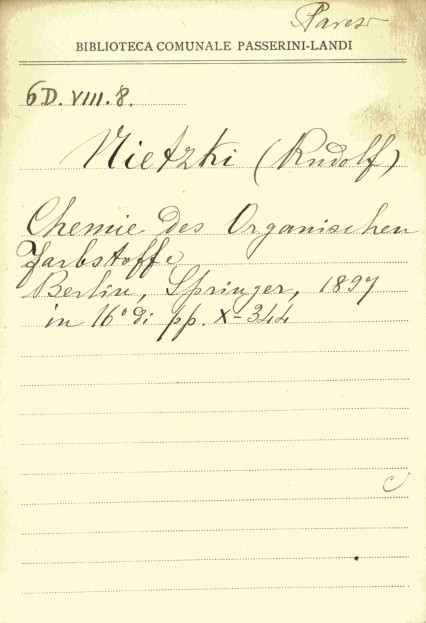 BIBLIOTECA COMUNALE PASSERINI-LANDI
6D. VIII. 8.
Nietzki (Rudolf)
Chemie des Organischen
Farbstoffe
Berlin, Springer, 1897
in 16° di pp. X-344